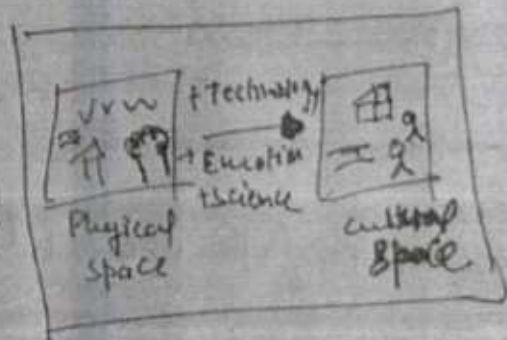 + Technology
+ Emotion
+ Science
Physical
space
cultural
space